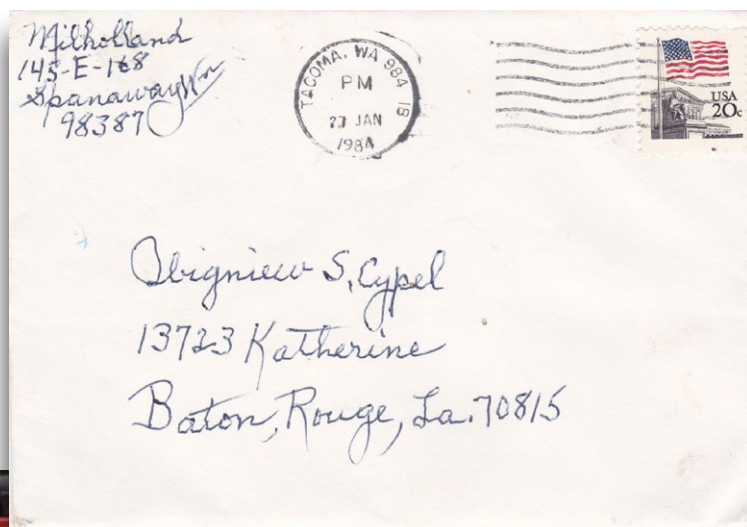 Milholland
145-E-168
Spanaway Wn
98387
TACOMA, WA 984 18
PM
23 JAN
1984
USA
20c
Zbigniew S. Cypel
13723 Katherine
Baton, Rouge, La. 70815